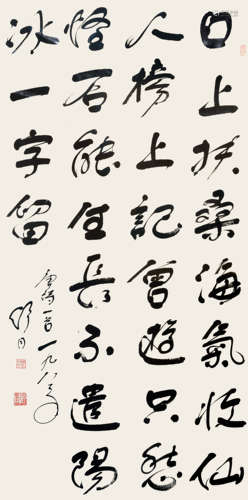 日上扶桑海氣收仙
人榜上記曾遊只愁
怪石能生長不遣陽
冰一字留
一首一九八年
舒同